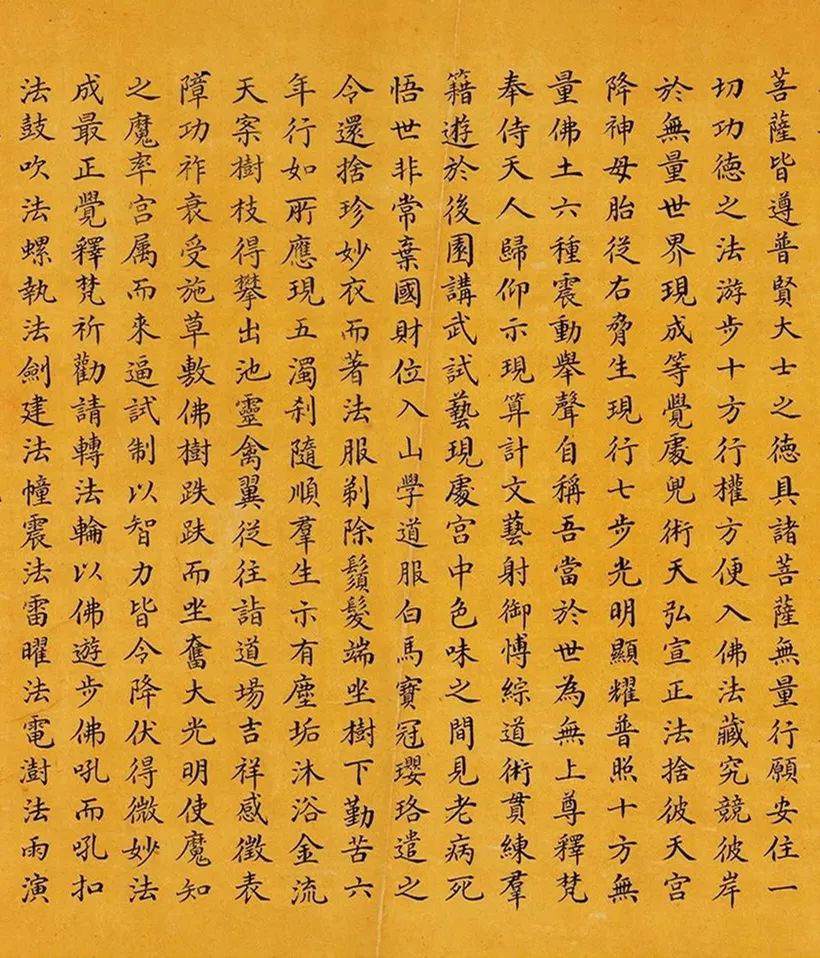 菩薩皆遵普賢大士之德具諸菩薩無量行願安住一
切功德之法游步十方行權方便入佛法藏究競彼岸
於無量世界現成等覺處兜術天弘宣正法捨彼天宮
降神母胎從右脅生現行七步光明顯耀普照十方無
量佛土六種震動舉聲自稱吾當於世為無上尊釋梵
奉侍天人歸仰示現算計文藝射御博綜道術貫練羣
籍遊於後園講武試藝現處宮中色味之間見老病死
悟世非常棄國財位入山學道服白馬寶冠瓔珞遣之
令還捨珍妙衣而著法服剃除鬚髮端坐樹下勤苦六
年行如所應現五濁刹隨順羣生示有塵垢沐浴金流
天案樹枝得攀出池靈禽翼從往詣道場吉祥感徵表
障功祚衰受施草敷佛樹跌趺而坐奮大光明使魔知
之魔率宮属而來逼試制以智力皆令降伏得微妙法
成最正覺釋梵祈勸請轉法輪以佛遊步佛吼而吼扣
法鼓吹法螺執法劍建法幢震法雷曜法電澍法雨演